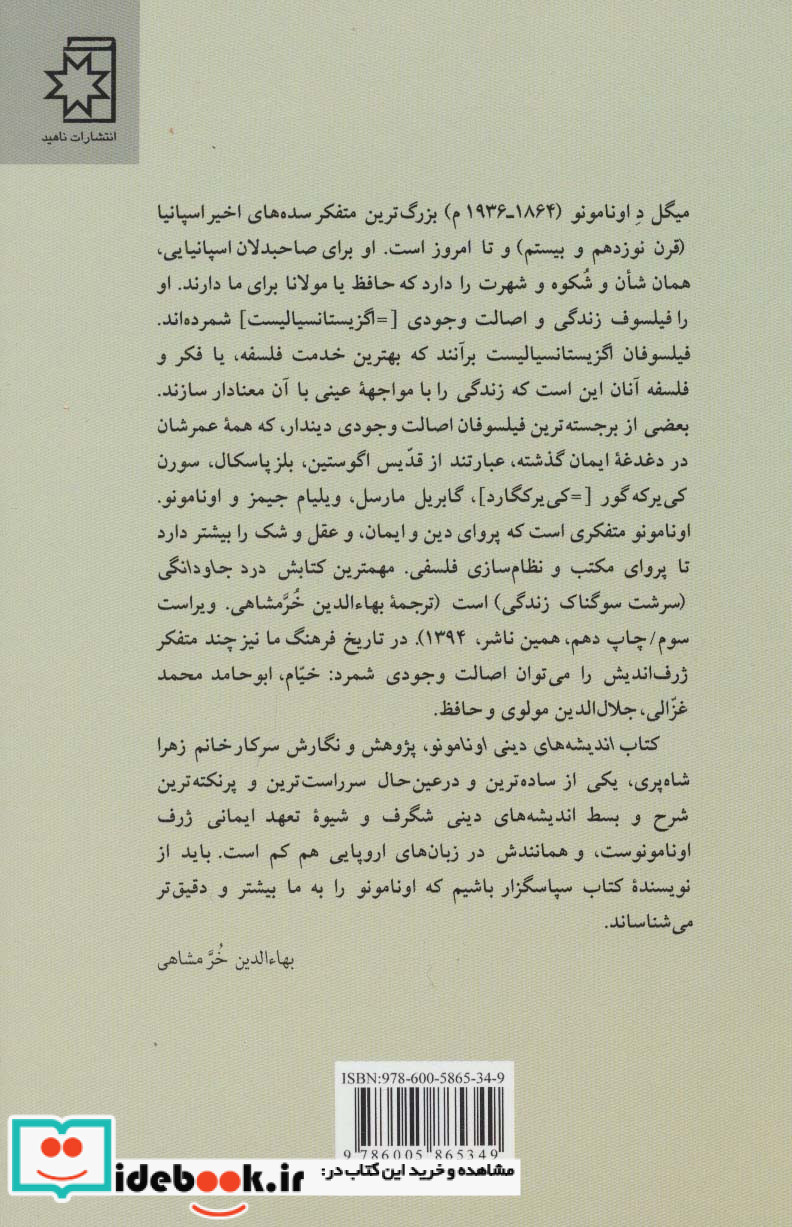 انتشارات ناهید
میگل دِ اونامونو (۱۸۶۴ـ۱۹۳۶ م) بزرگ‌ترین متفکر سده‌های اخیر اسپانیا
(قرن نوزدهم و بیستم) و تا امروز است. او برای صاحبدلان اسپانیایی،
همان شأن و شُکوه و شهرت را دارد که حافظ یا مولانا برای ما دارند. او
را فیلسوف زندگی و اصالت وجودی [=اگزیستانسیالیست] شمرده‌اند.
فیلسوفان اگزیستانسیالیست برآنند که بهترین خدمت فلسفه، یا فکر و
فلسفه آنان این است که زندگی را با مواجههٔ عینی با آن معنادار سازند.
بعضی از برجسته‌ترین فیلسوفان اصالت وجودی دیندار، که همهٔ عمرشان
در دغدغهٔ ایمان گذشته، عبارتند از قدّیس اگوستین، بلز پاسکال، سورن
کی‌یرکه‌گور [=کی‌یرکگارد]، گابریل مارسل، ویلیام جیمز و اونامونو.
اونامونو متفکری است که پروای دین و ایمان، و عقل و شک را بیشتر دارد
تا پروای مکتب و نظام‌سازی فلسفی. مهمترین کتابش درد جاودانگی
(سرشت سوگناک زندگی) است (ترجمهٔ بهاءالدین خُرَّمشاهی. ویراست
سوم/چاپ دهم، همین ناشر، ۱۳۹۴). در تاریخ فرهنگ ما نیز چند متفکر
ژرف‌اندیش را می‌توان اصالت وجودی شمرد: خیّام، ابوحامد محمد
غزّالی، جلال‌الدین مولوی و حافظ.
کتاب اندیشه‌های دینی اونامونو، پژوهش و نگارش سرکار خانم زهرا
شاه‌پری، یکی از ساده‌ترین و درعین‌حال سرراست‌ترین و پرنکته‌ترین
شرح و بسط اندیشه‌های دینی شگرف و شیوهٔ تعهد ایمانی ژرف
اونامونوست، و همانندش در زبان‌های اروپایی هم کم است. باید از
نویسندهٔ کتاب سپاسگزار باشیم که اونامونو را به ما بیشتر و دقیق‌تر
می‌شناساند.
بهاءالدین خُرَّمشاهی
ISBN:978-600-5865-34-9
9 786005 865349
مشاهده و خرید این کتاب در:
idebook.ir